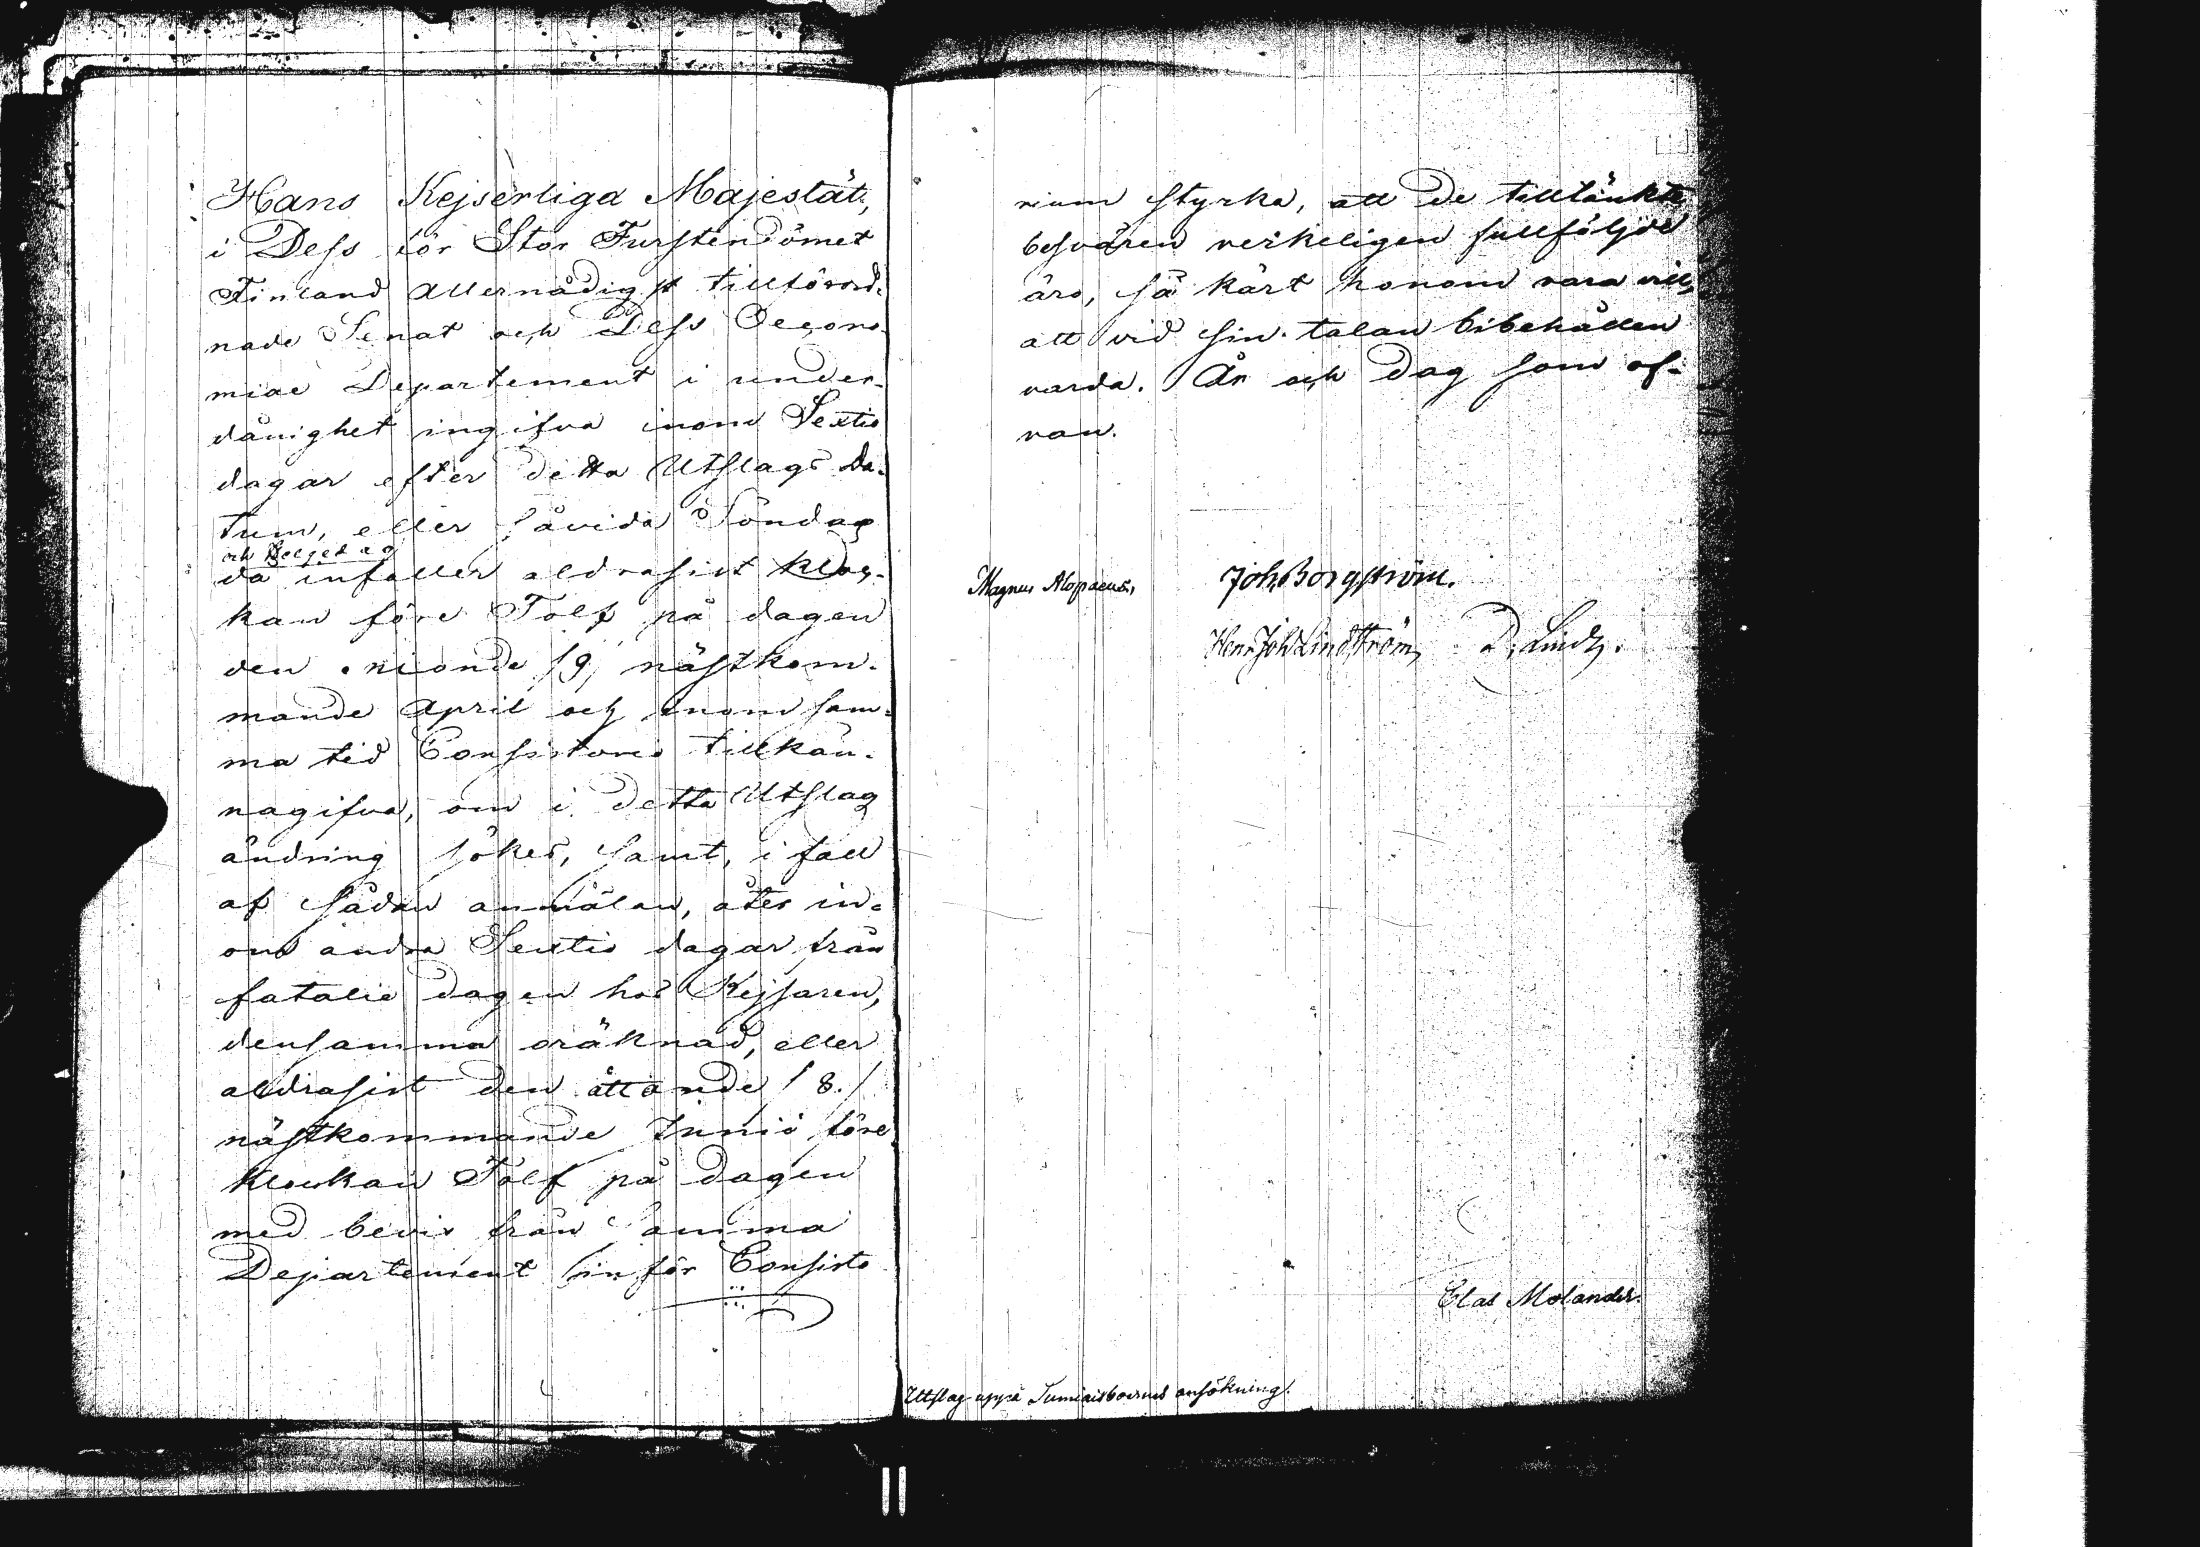 Hans Kejserliga Majestät,
i Dess för Stor Furstendömet
Finland Allernådigst tillförord-
nade Senat och Dess Oecono-
miae Departement i under-
dånighet ingifva inom Sextio
dagar efter detta Utslags da-
tum, eller såvida Söndag
och Helgedag
då infaller aldrasist kloc-
kan före Tolf på dagen
den nionde /9/ nästkom-
mande April och inom sam-
ma tid Consistorio tillkän-
nagifva, om i detta Utslag
ändring sökes, samt, i fall
af sådan anmälan, åter in-
om andra Sextio dagar från
fatalie dagen hos Kejsaren,
densamma oräknad, eller
aldrasist den åttonde / 8. /
nästkommande Junii före
klockan Tolf på dagen
med bevis från samma
Departement inför Consisto-
rium styrka, att de tilltänkte
besvären verkeligen fullföljde
äro, så kärt honom vara vill,
att vid sin talan bibehållen
varda. År och dag som of-
van.
Magnus Alopaeus, Joh. Borgström.
Henr. Joh. Lindström,
Clas Molander.
Utslag uppå ansökning.